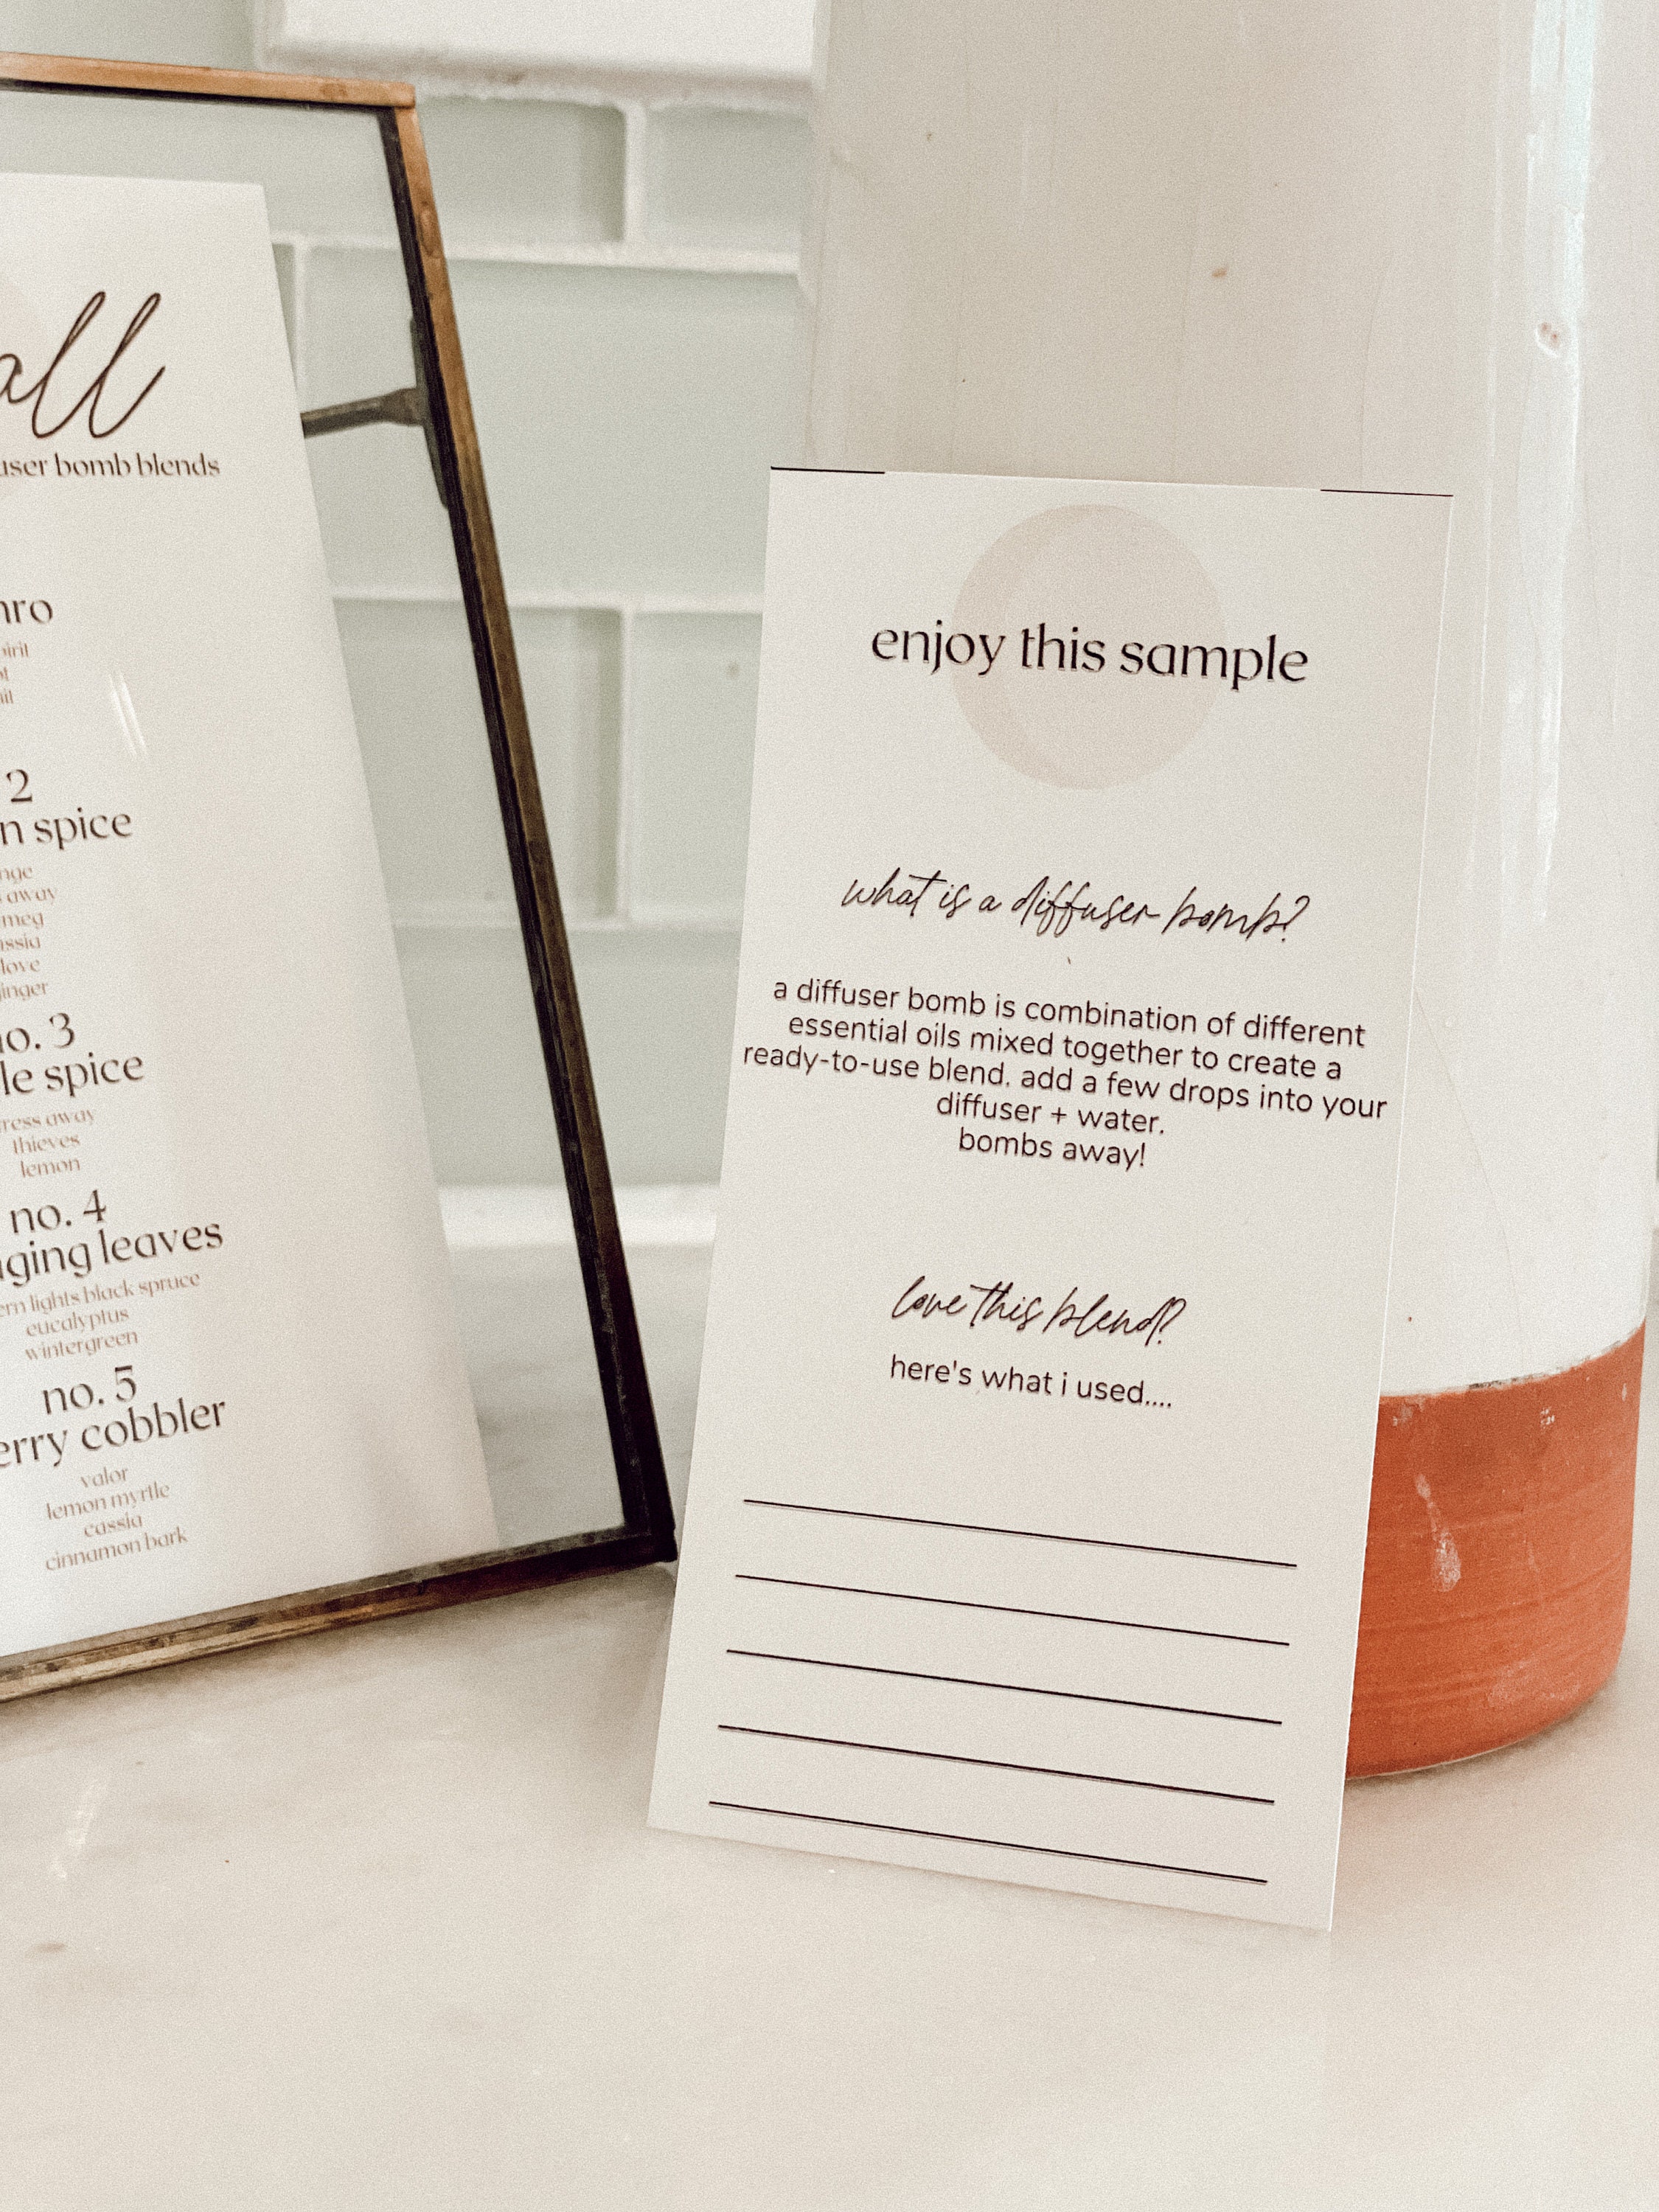 all
bomb blends
2
spice
no. 3
spice
away
thieves
lemon
no. 4
leaves
lights black spruce
eucalyptus
wintergreen
no. 5
cobbler
valor
lemon myrtle
cassia
cinnamon bark
enjoy this sample
what is a diffuser bomb?
a diffuser bomb is combination of different
essential oils mixed together to create a
ready-to-use blend. add a few drops into your
diffuser + water.
bombs away!
love this blend?
here's what i used....